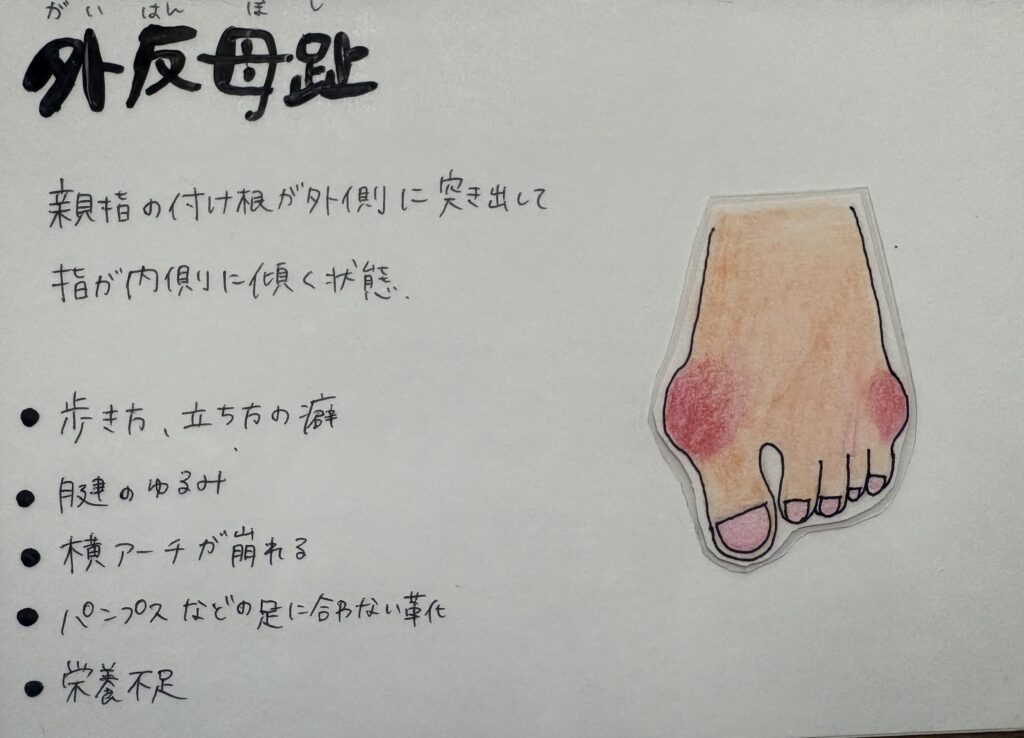 がいはんぼし
外反母趾
親指の付け根が外側に突き出して
指が内側に傾く状態.
● 歩き方、立ち方の癖
● 腱のゆるみ
● 横アーチが崩れる
● パンプスなどの足に合わない革化
● 栄養不足